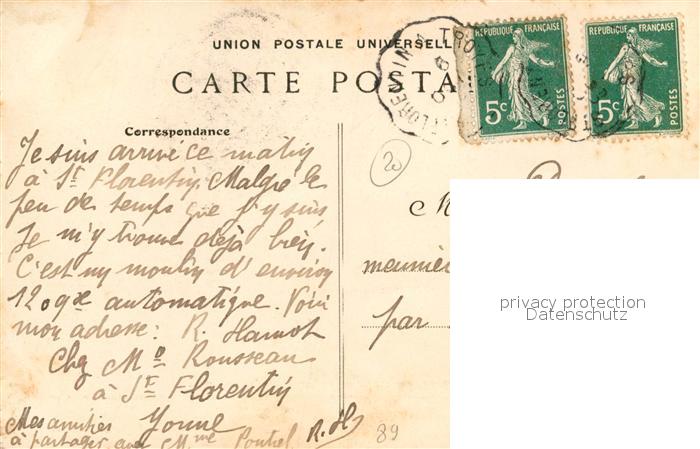 UNION POSTALE UNIVERSELLE
CARTE POSTA
RÉPUBLIQUE FRANÇAISE
5c
POSTES
RÉPUBLIQUE FRANÇAISE
5c
POSTES
Correspondance
Je suis arrivé ce matin
à St Florentin. Malgré le
peu de temps que j'y suis
Je m'y trouve déjà bien.
C'est un moulin d'environ
120 qx automatique. Voici
mon adresse: R. Hamot
Chez Mo Rousseau
à St Florentin
Yonne
Mes amitiés
à partager avec Mme
R. H
20
M
meunier
par
89
privacy protection
Datenschutz